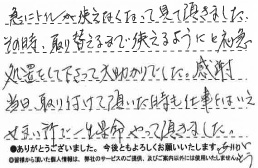 急にトイレが使えなくなって見て頂きました。
その時、取り替えるまで使えるようにと応急
処置をして下さって大助かりでした。感謝
当日、取り付けて頂いた日も仕事とはいえ
せまい所に一生懸命やって頂きました。
●ありがとうございました。今後ともよろしくお願いいたします。
◎皆様から頂いた個人情報は、弊社のサービスのご提供、及びご案内以外には使用いたしません。